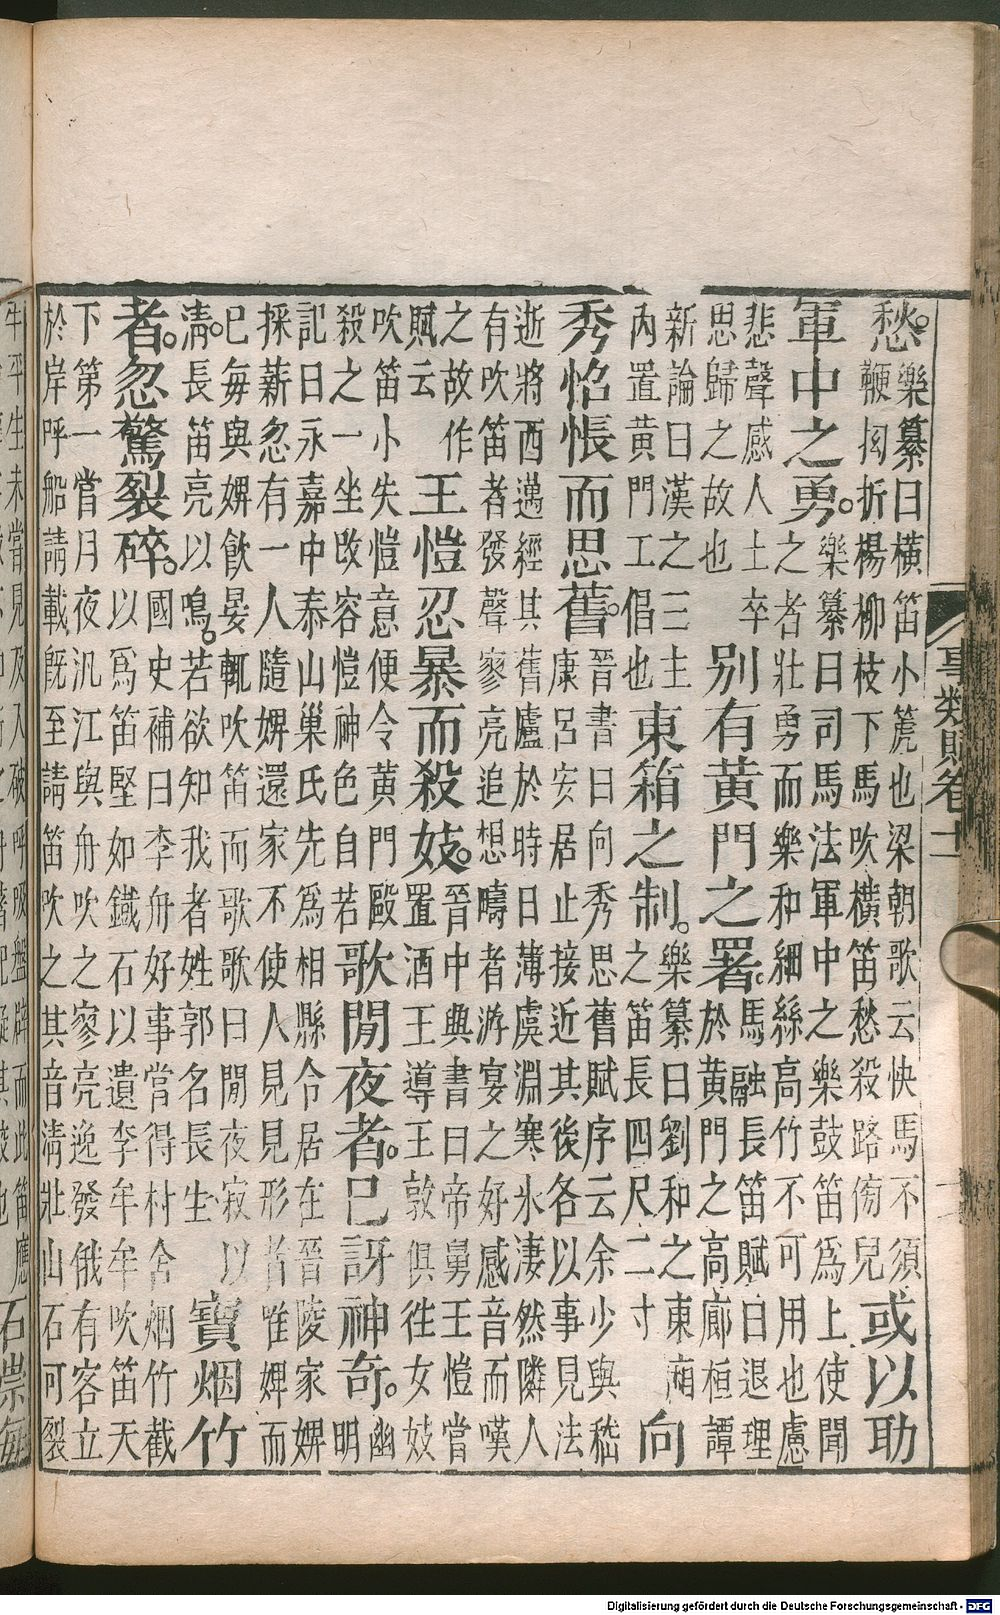 事類賦卷十一
愁。樂纂曰橫笛小箎也梁朝歌云快馬不須
鞭拗折楊柳枝下馬吹橫笛愁殺路傍兒或以助
軍中之勇。樂纂曰司馬法軍中之樂鼓笛為上使聞
之者壯勇而樂和細絲高竹不可用也慮
悲聲感人士卒
思歸之故也別有黃門之署。馬融長笛賦曰退理
於黃門之高廊桓譚
新論曰漢之三主
內置黃門工倡也東箱之制。樂纂曰劉和之東廂
之笛長四尺二寸向
秀怊悵而思舊。晉書曰向秀思舊賦序云余少與嵇
康呂安居止接近其後各以事見法
逝將西邁經其舊廬於時日薄虞淵寒氷淒然隣人
有吹笛者發聲寥亮追想疇者游宴之好感音而嘆
之故作
賦云王愷忍暴而殺妓。晉中典書曰帝舅王愷當
置酒王導王敦俱徃女妓
吹笛小失愷意便令黃門毆
殺之一坐改容愷神色自若歌閒夜者。巳訝神奇。幽
明
記曰永嘉中泰山巢氏先為相縣令居在晉陵家婢
採薪忽有一人隨婢還家不使人見見形者唯婢而
巳每與婢飲宴輒吹笛而歌歌曰閒夜寂以
清。長笛亮以鳴。若欲知我者姓郭名長生寶烟竹
者。忽驚裂碎。國史補曰李舟好事當得村舍烟竹截
以為笛堅如鐵石以遺李牟牟吹笛天
下第一嘗月夜汎江與舟吹之寥亮逸發俄有客立
於岸呼船請載既至請笛吹之其音清壯山石可裂
牟平生未嘗見及入破呼吸盤擗而此笛應
石崇每
Digitalisierung gefördert durch die Deutsche Forschungsgemeinschaft - DFG